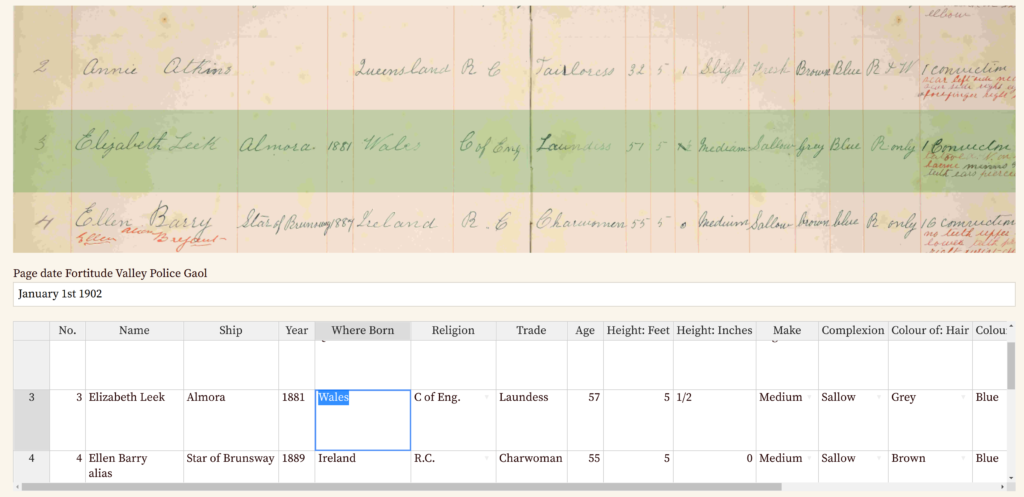 elbow
2 Annie Atkins Queensland R C Tailoress 32 5 1 Slight Fresh Brown Blue R & W 1 conviction
scar left side nec
forefinger right
3 Elizabeth Leek Almora 1881 Wales C of Eng Laundess 57 5 ½ Medium Sallow Grey Blue R only 1 Conviction
teeth ears pierced
4 Ellen Barry Star of Brunswy 1889 Ireland R. C Charwoman 55 5 0 Medium Sallow brown blue R only 16 conviction
Ellen alias Bryant
no teeth upper
Page date Fortitude Valley Police Gaol
January 1st 1902
No. Name Ship Year Where Born Religion Trade Age Height: Feet Height: Inches Make Complexion Colour of: Hair Colou
3 3 Elizabeth Leek Almora 1881 Wales C of Eng. Laundess 57 5 1/2 Medium Sallow Grey Blue
4 4 Ellen Barry Star of Brunsway 1889 Ireland R.C. Charwoman 55 5 0 Medium Sallow Brown Blue
alias